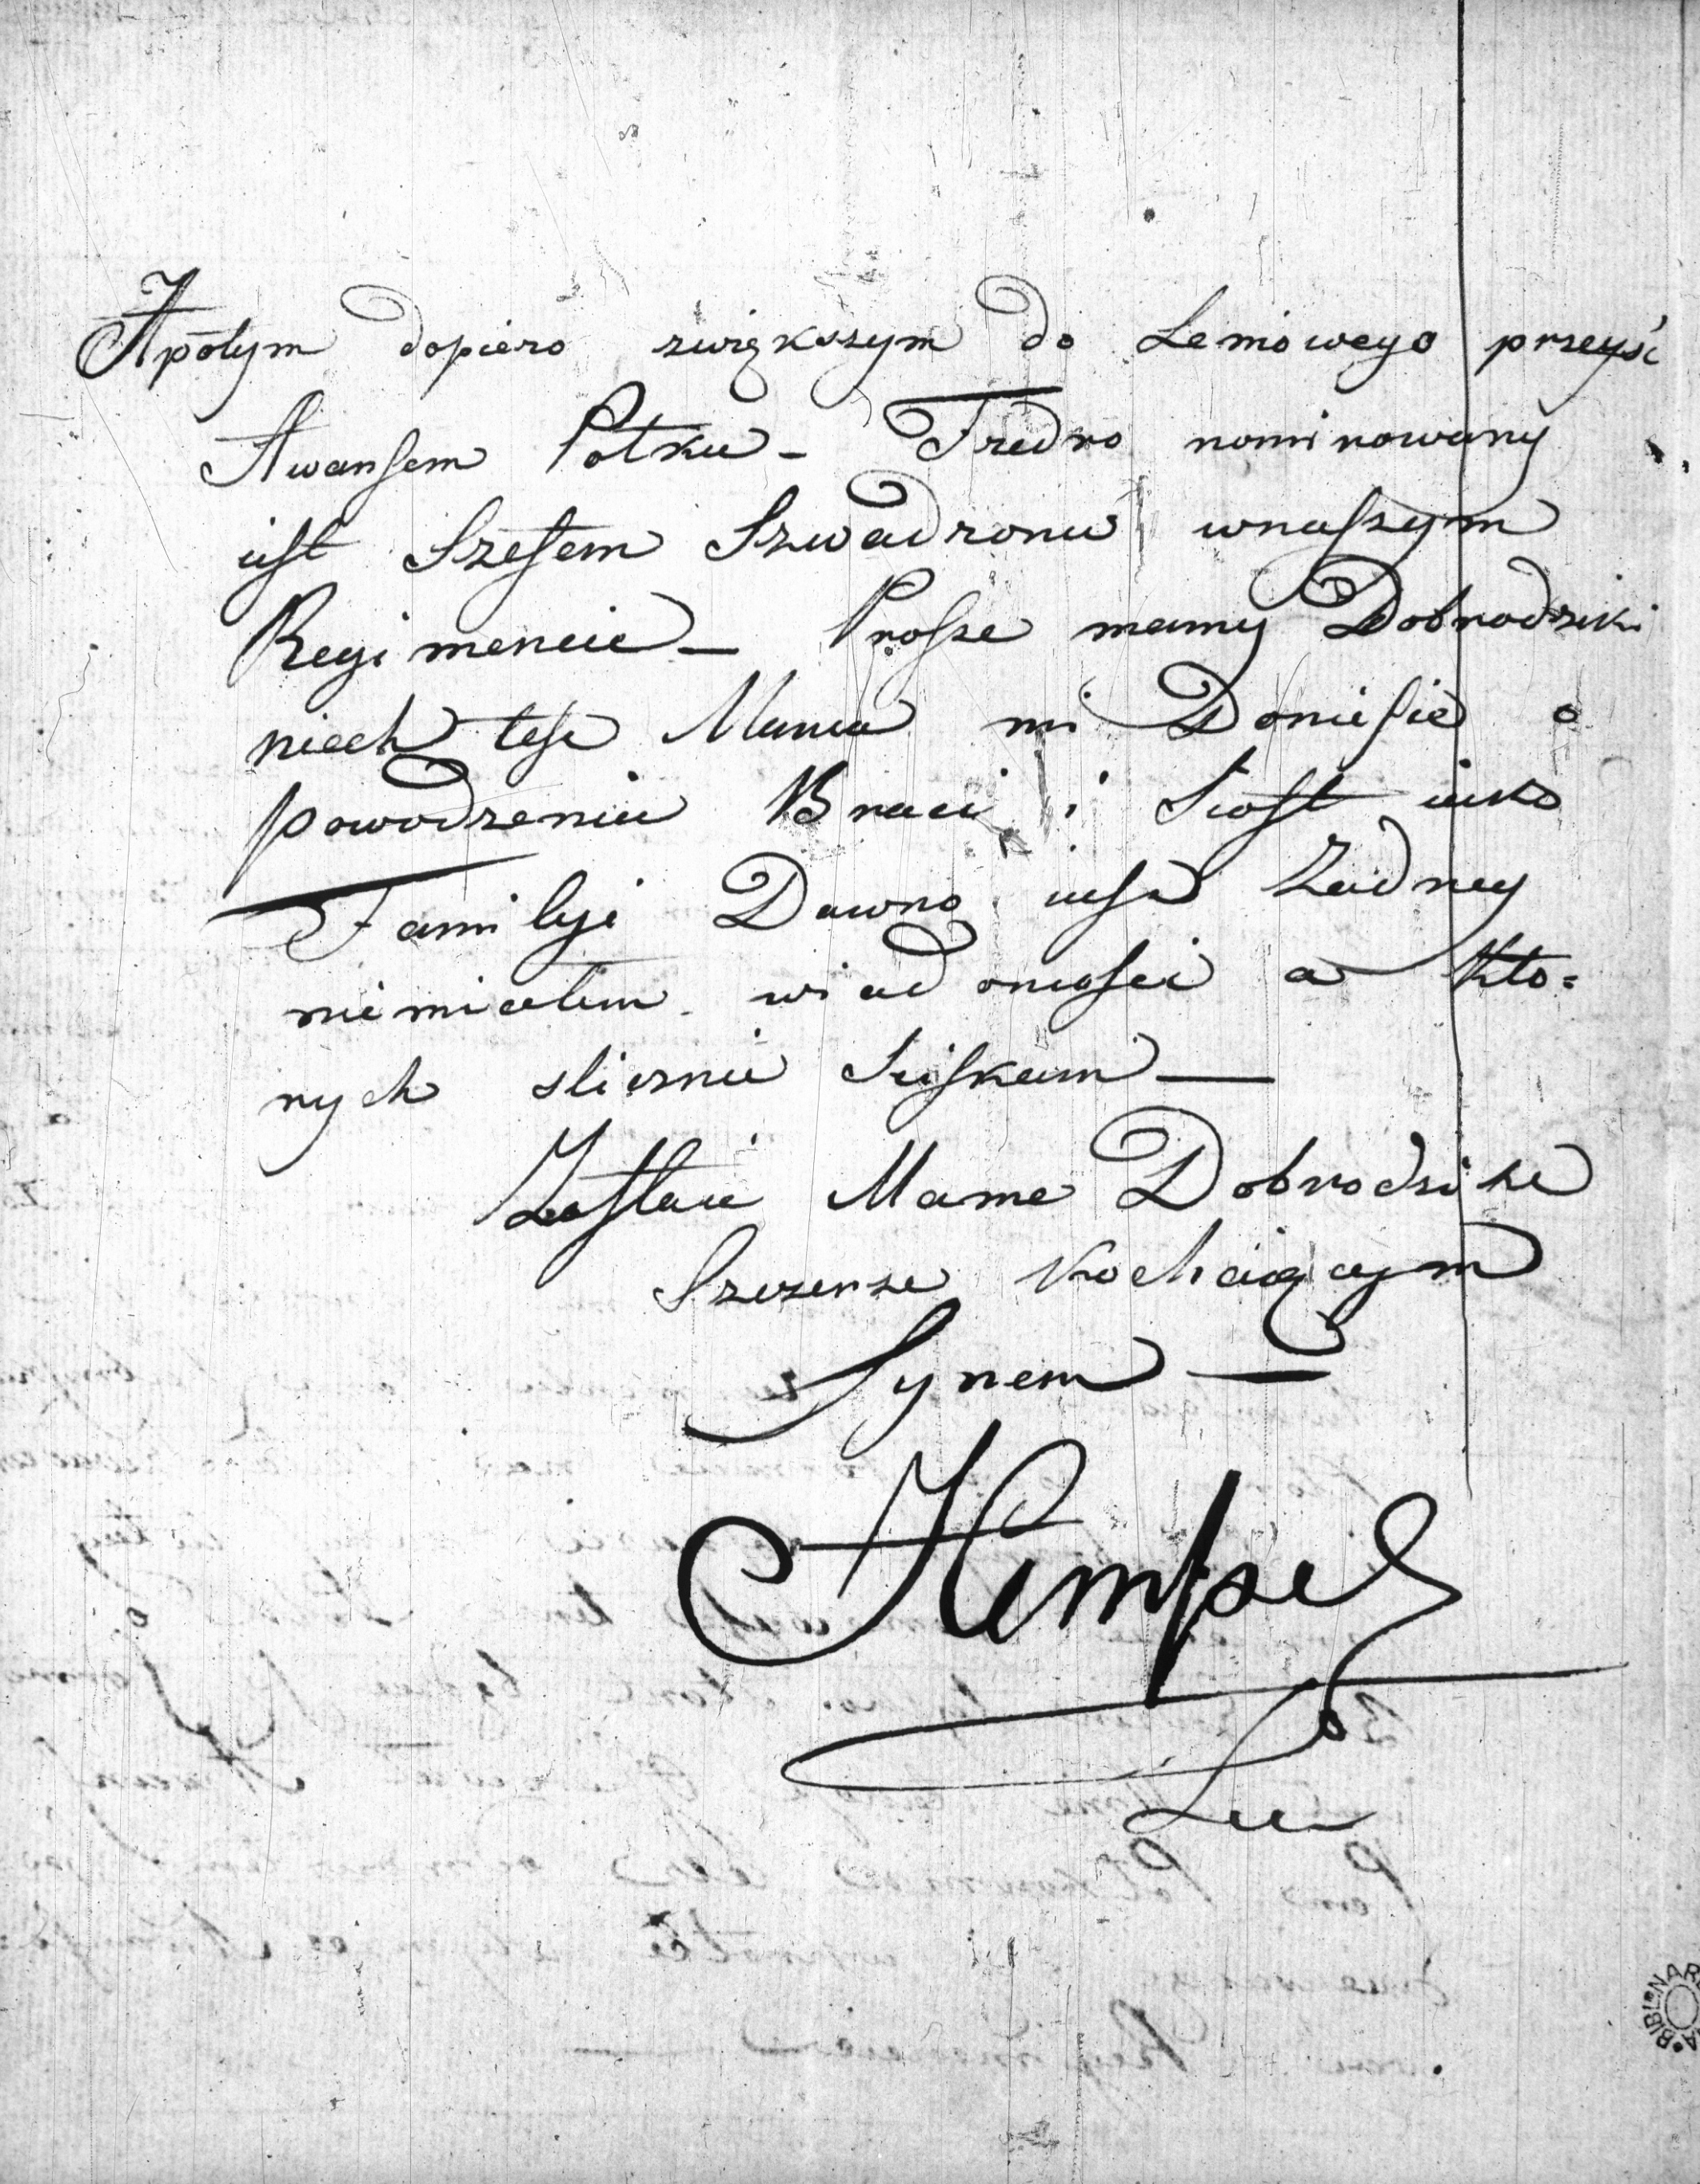 Apotym dopiero zwiększym do Leniowego przeyść
Awansem Potku - Fredro nominowany
iest Szefem Szwadronu wnaszym
Regimencie - Prosze mamy Dobrodziki
niech tesz Mama mi Doniesie o
powodzeniu Braci i Siost iako
Familyi Dawno iusz Zadney
niemialem wiadomosci a Kto=
rych slicznie Sciskam —
Zostaie Mame Dobrodzike
Szczerze Kochaiącym
Synem —
Hempel
BIBL NAR